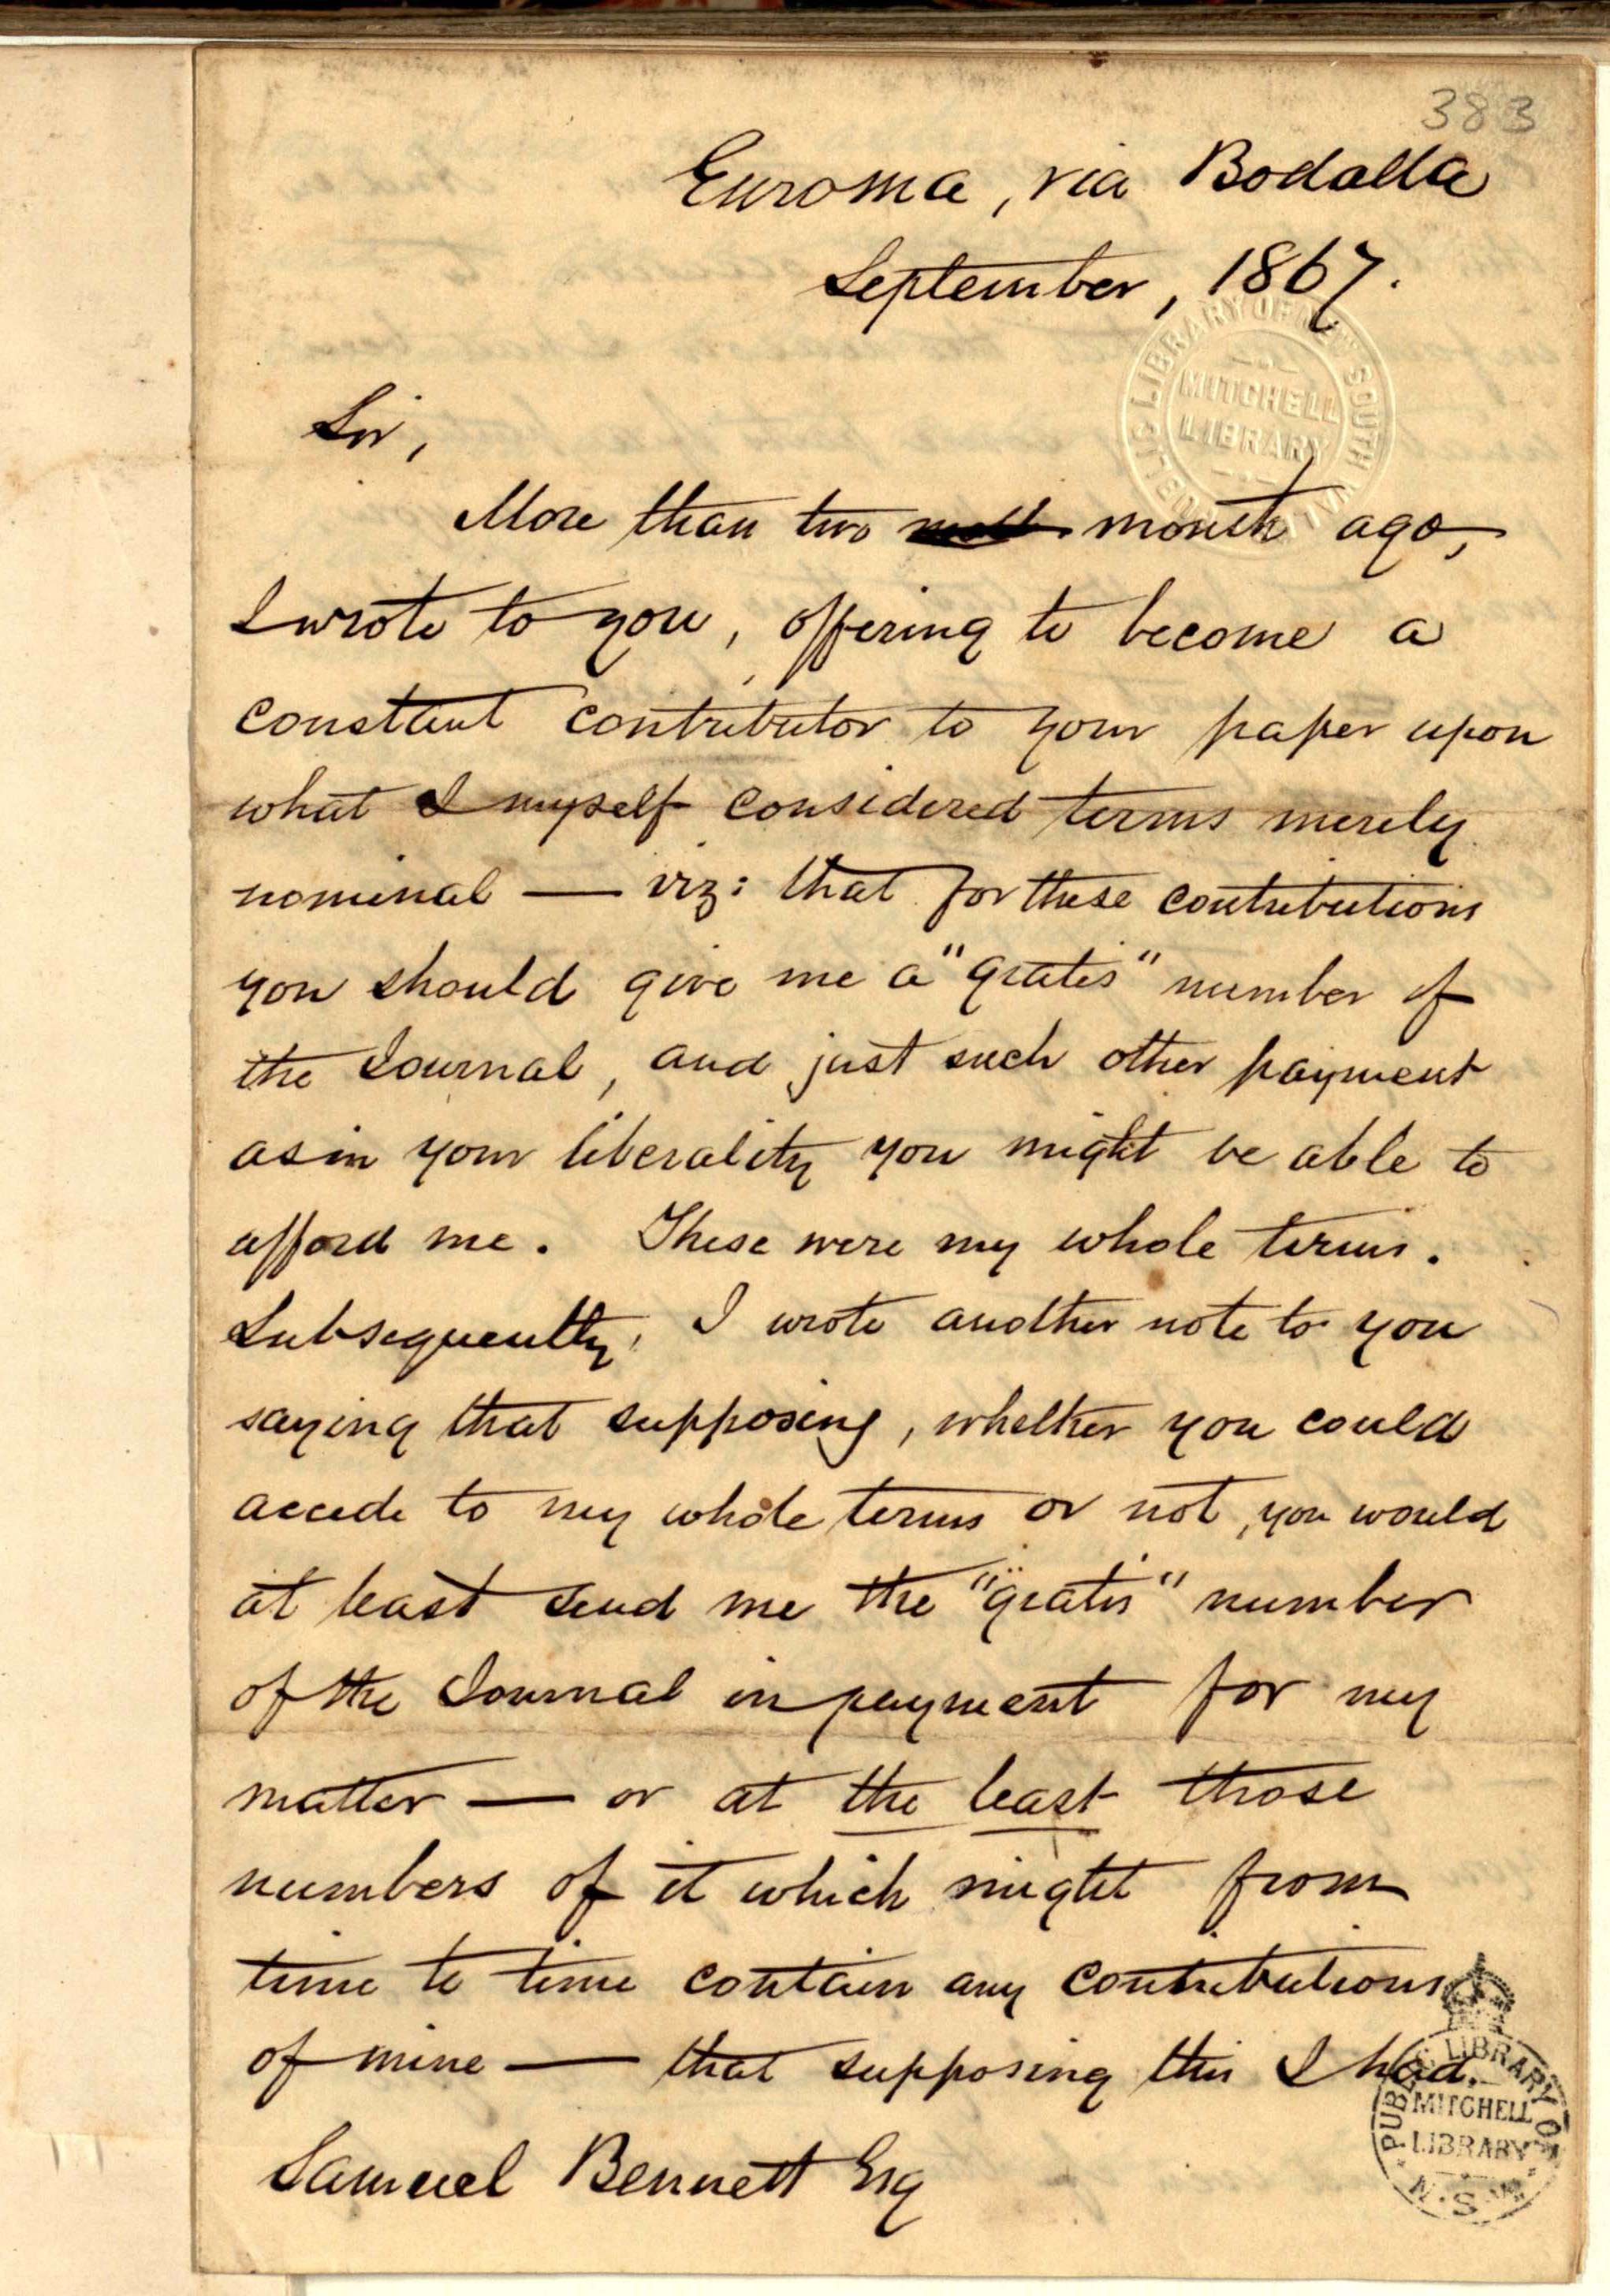 383
Euroma, via Bodalla
September, 1867.
Sir,
More than two month ago,
I wrote to you, offering to become a
constant contributor to your paper upon
what I myself considered terms merely
nominal — viz: that for these contributions
you should give me a "gratis" number of
the Journal, and just such other payment
as in your liberality you might be able to
afford me. These were my whole terms.
Subsequently, I wrote another note to you
saying that supposing, whether you could
accede to my whole terms or not, you would
at least send me the "gratis" number
of the Journal in payment for my
matter — or at the least those
numbers of it which might from
time to time contain any contributions
of mine — that supposing this I had.
Samuel Bennett Esq
PUBLIC LIBRARY OF NEW SOUTH WALES
MITCHELL
LIBRARY
PUBLIC LIBRARY OF N.S.W.
MITCHELL
LIBRARY